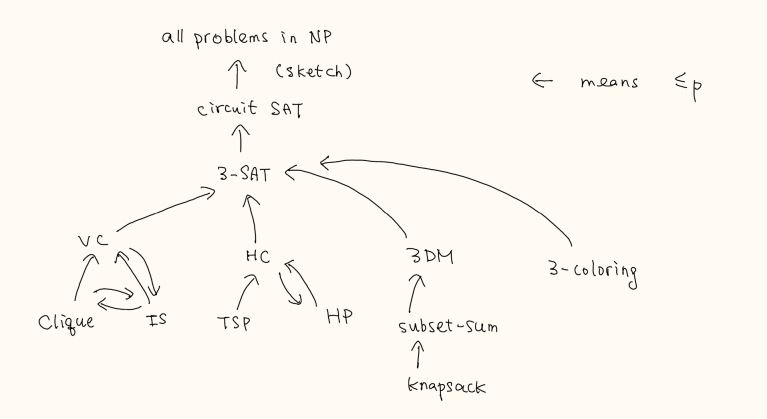 all problems in NP
(sketch)
← means ≤p
circuit SAT
3-SAT
VC
HC
3DM
3-coloring
Clique
IS
TSP
HP
subset-sum
knapsack